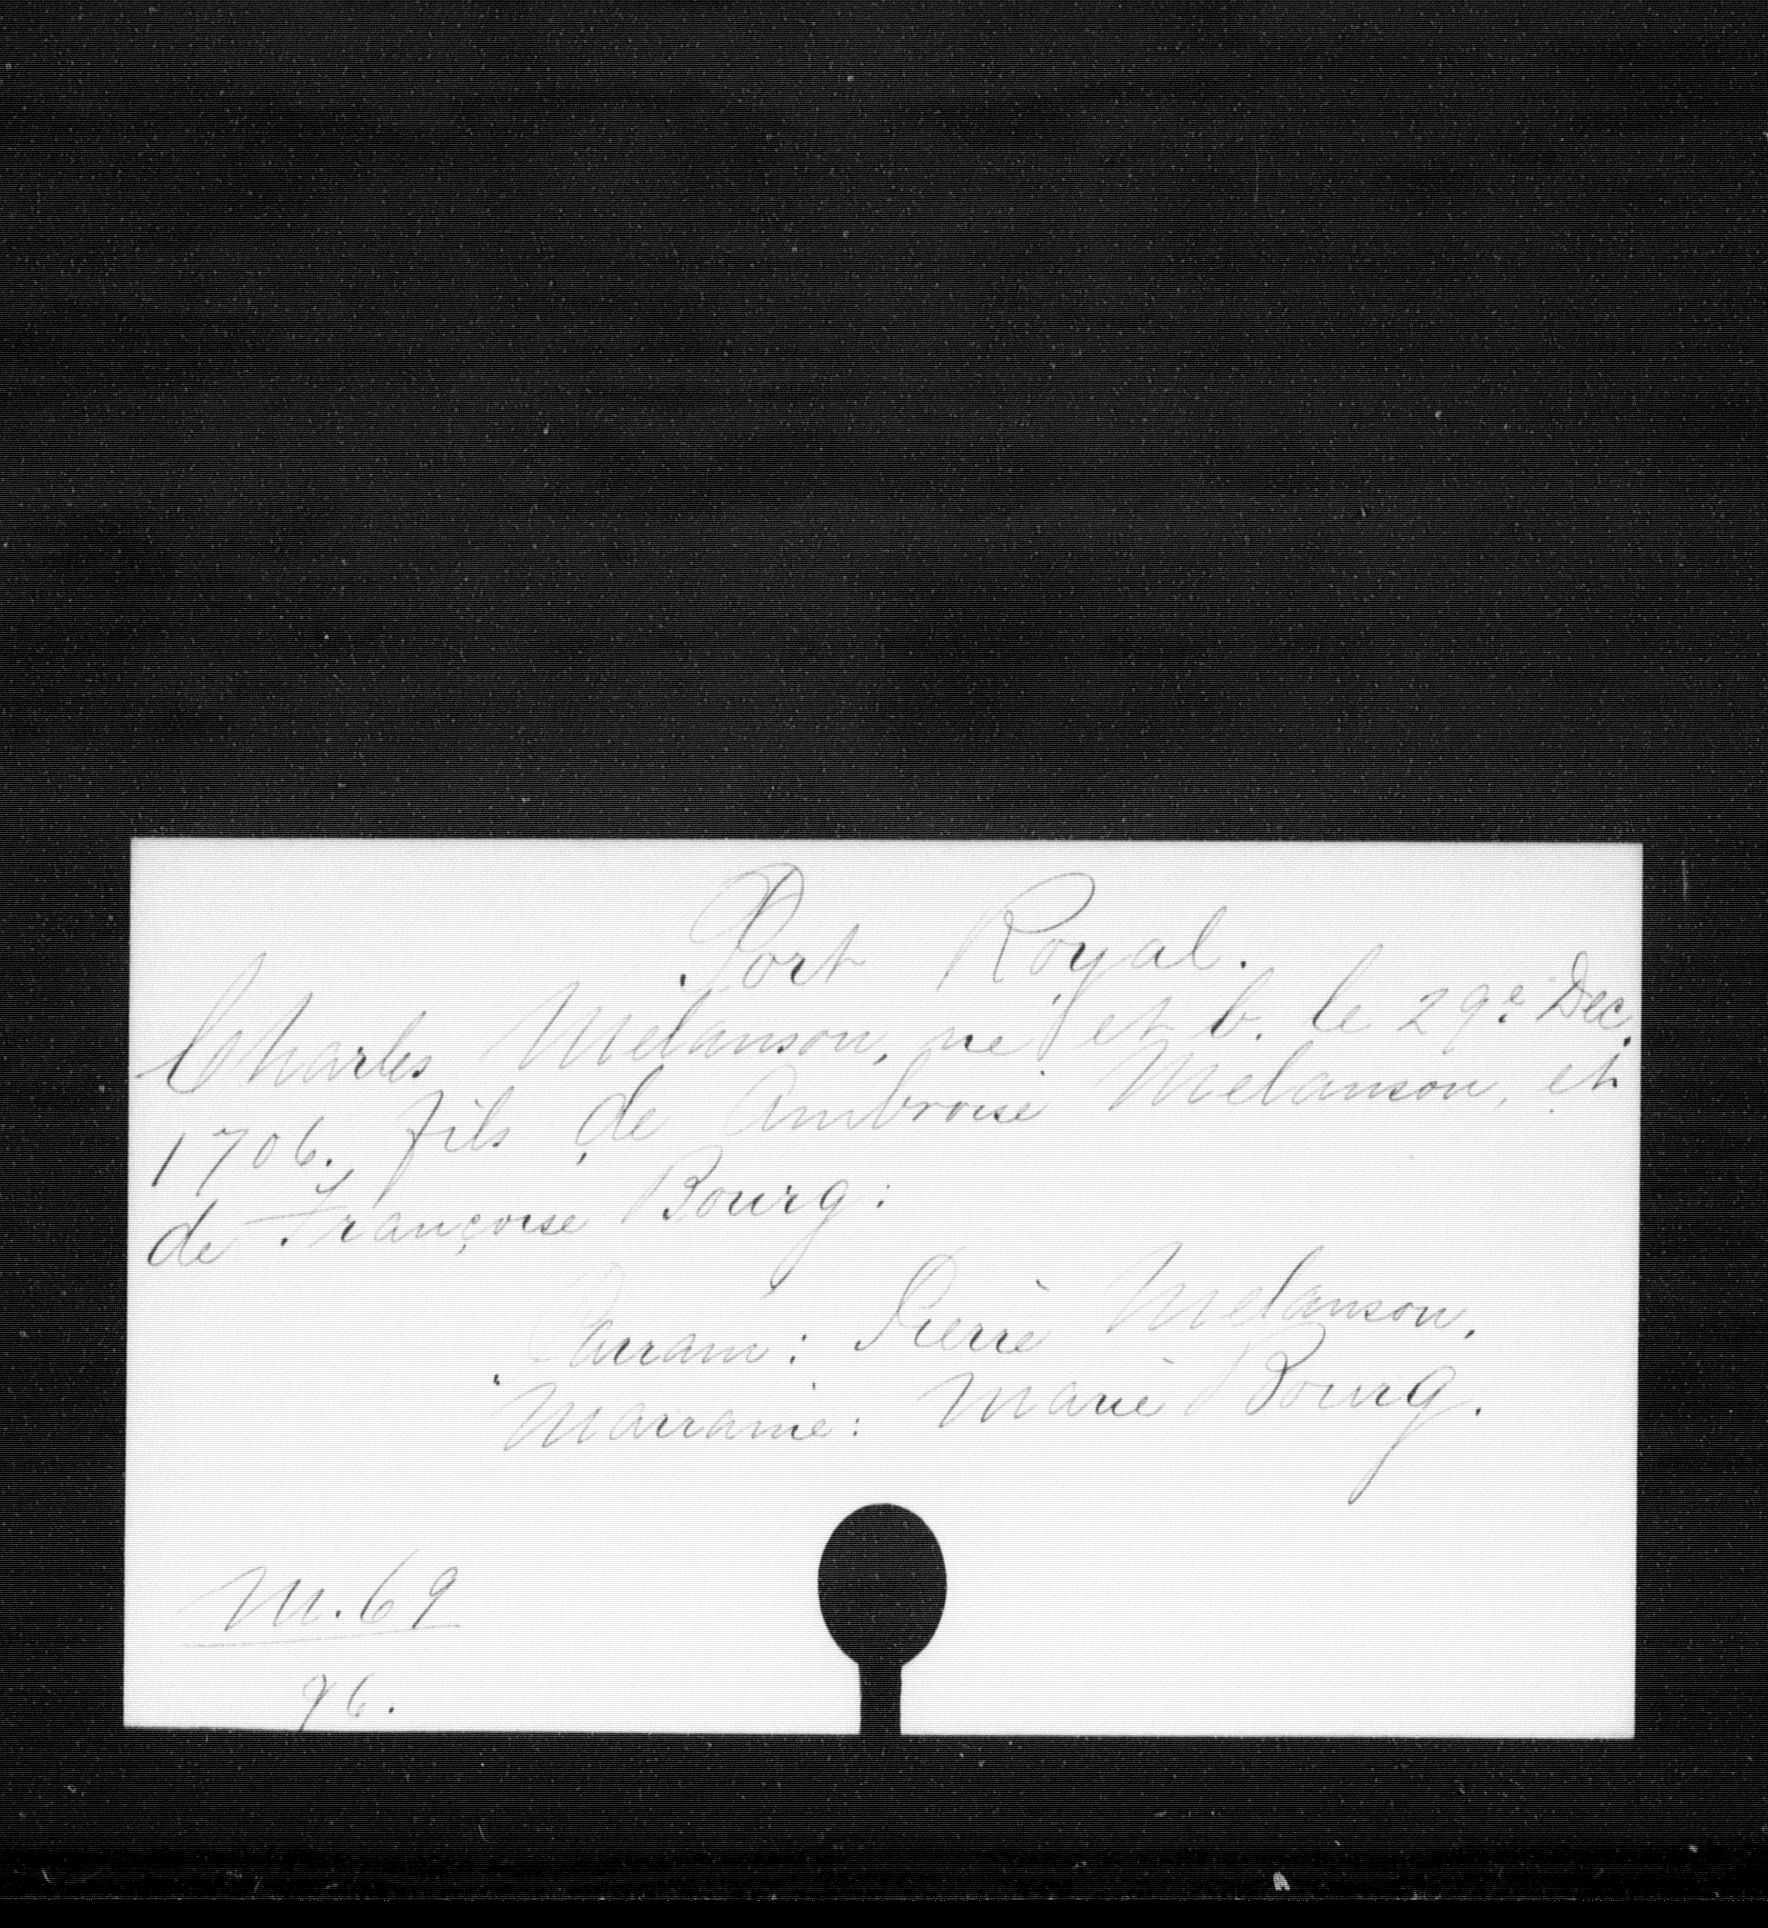 Port Royal.
Charles Melanson, né et b. le 29e Dec.
1706. fils de Ambroise Melanson, et
de Françoise Bourg:
Parrain: Pierre Melanson.
Marraine: Marie Bourg.
M.69
96.